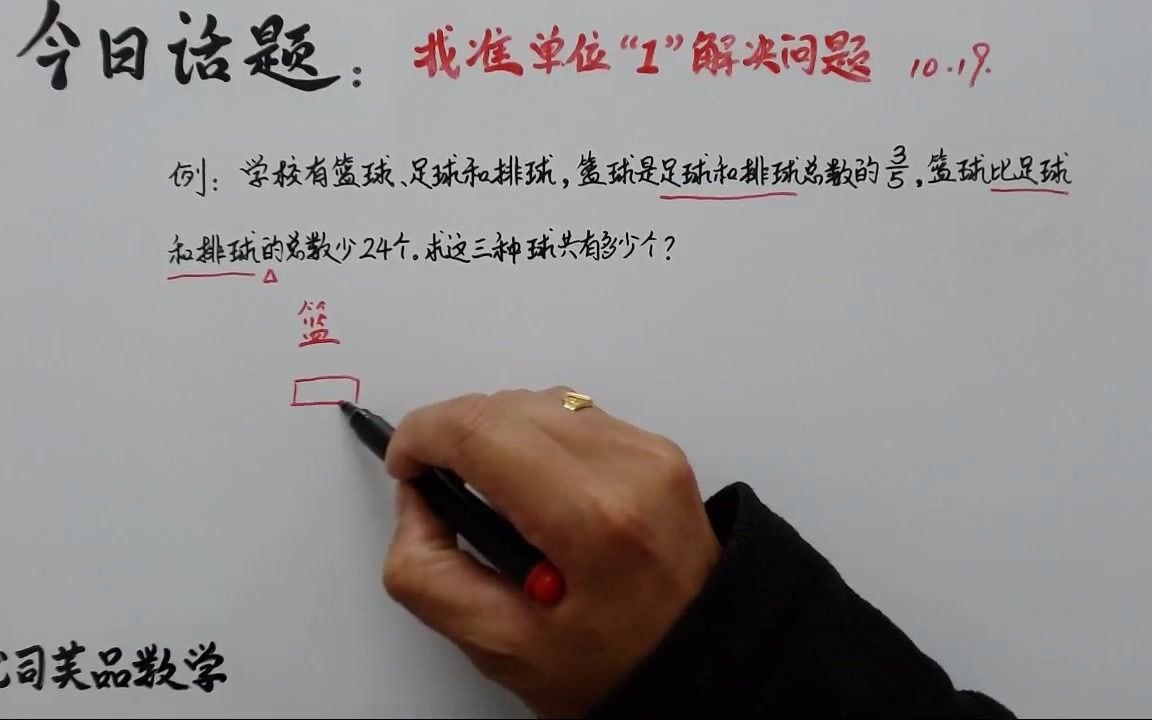 今日话题：找准单位“1”解决问题 10.19.
例：学校有篮球、足球和排球，篮球是足球和排球总数的3/5，篮球比足球
和排球的总数少24个。求这三种球共有多少个？
篮
司芙品数学